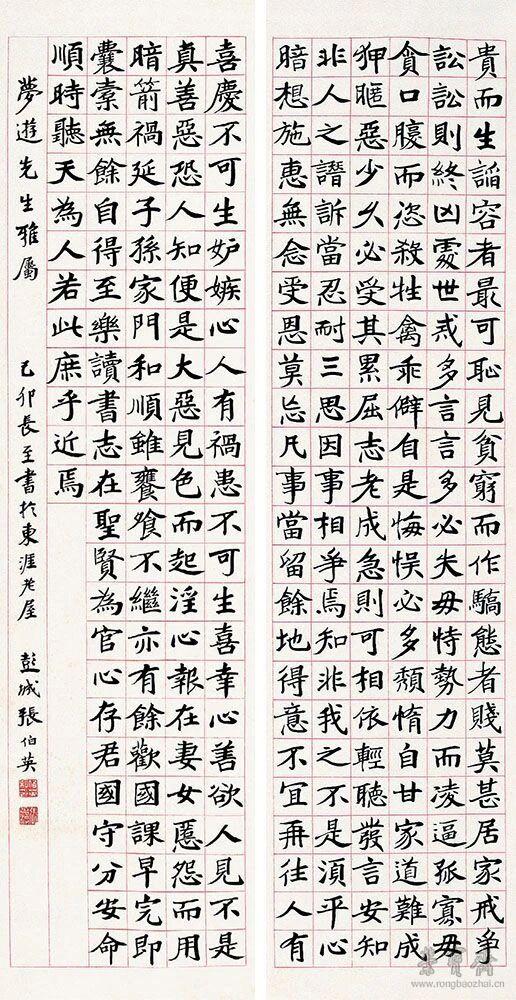 貴而生謟容者最可恥見貧窮而作驕態者賤莫甚居家戒爭
訟訟則終凶處世戒多言言多必失毋恃勢力而凌逼孤寡毋
貪口腹而恣殺牲禽乖僻自是悔悞必多頹惰自甘家道難成
狎暱惡少久必受其累屈志老成急則可相依輕聽發言安知
非人之譖訴當忍耐三思因事相爭焉知非我之不是須平心
暗想施惠無念受恩莫忘凡事當留餘地得意不宜再往人有
喜慶不可生妒嫉心人有禍患不可生喜幸心善欲人見不是
真善惡恐人知便是大惡見色而起淫心報在妻女慝怨而用
暗箭禍延子孫家門和順雖饔飧不繼亦有餘歡國課早完即
囊橐無餘自得至樂讀書志在聖賢為官心存君國守分安命
順時聽天為人若此庶乎近焉
夢遊先生雅屬 己卯長至書於東涯老屋 彭城張伯英
榮寶齋
www.rongbaozhai.cn